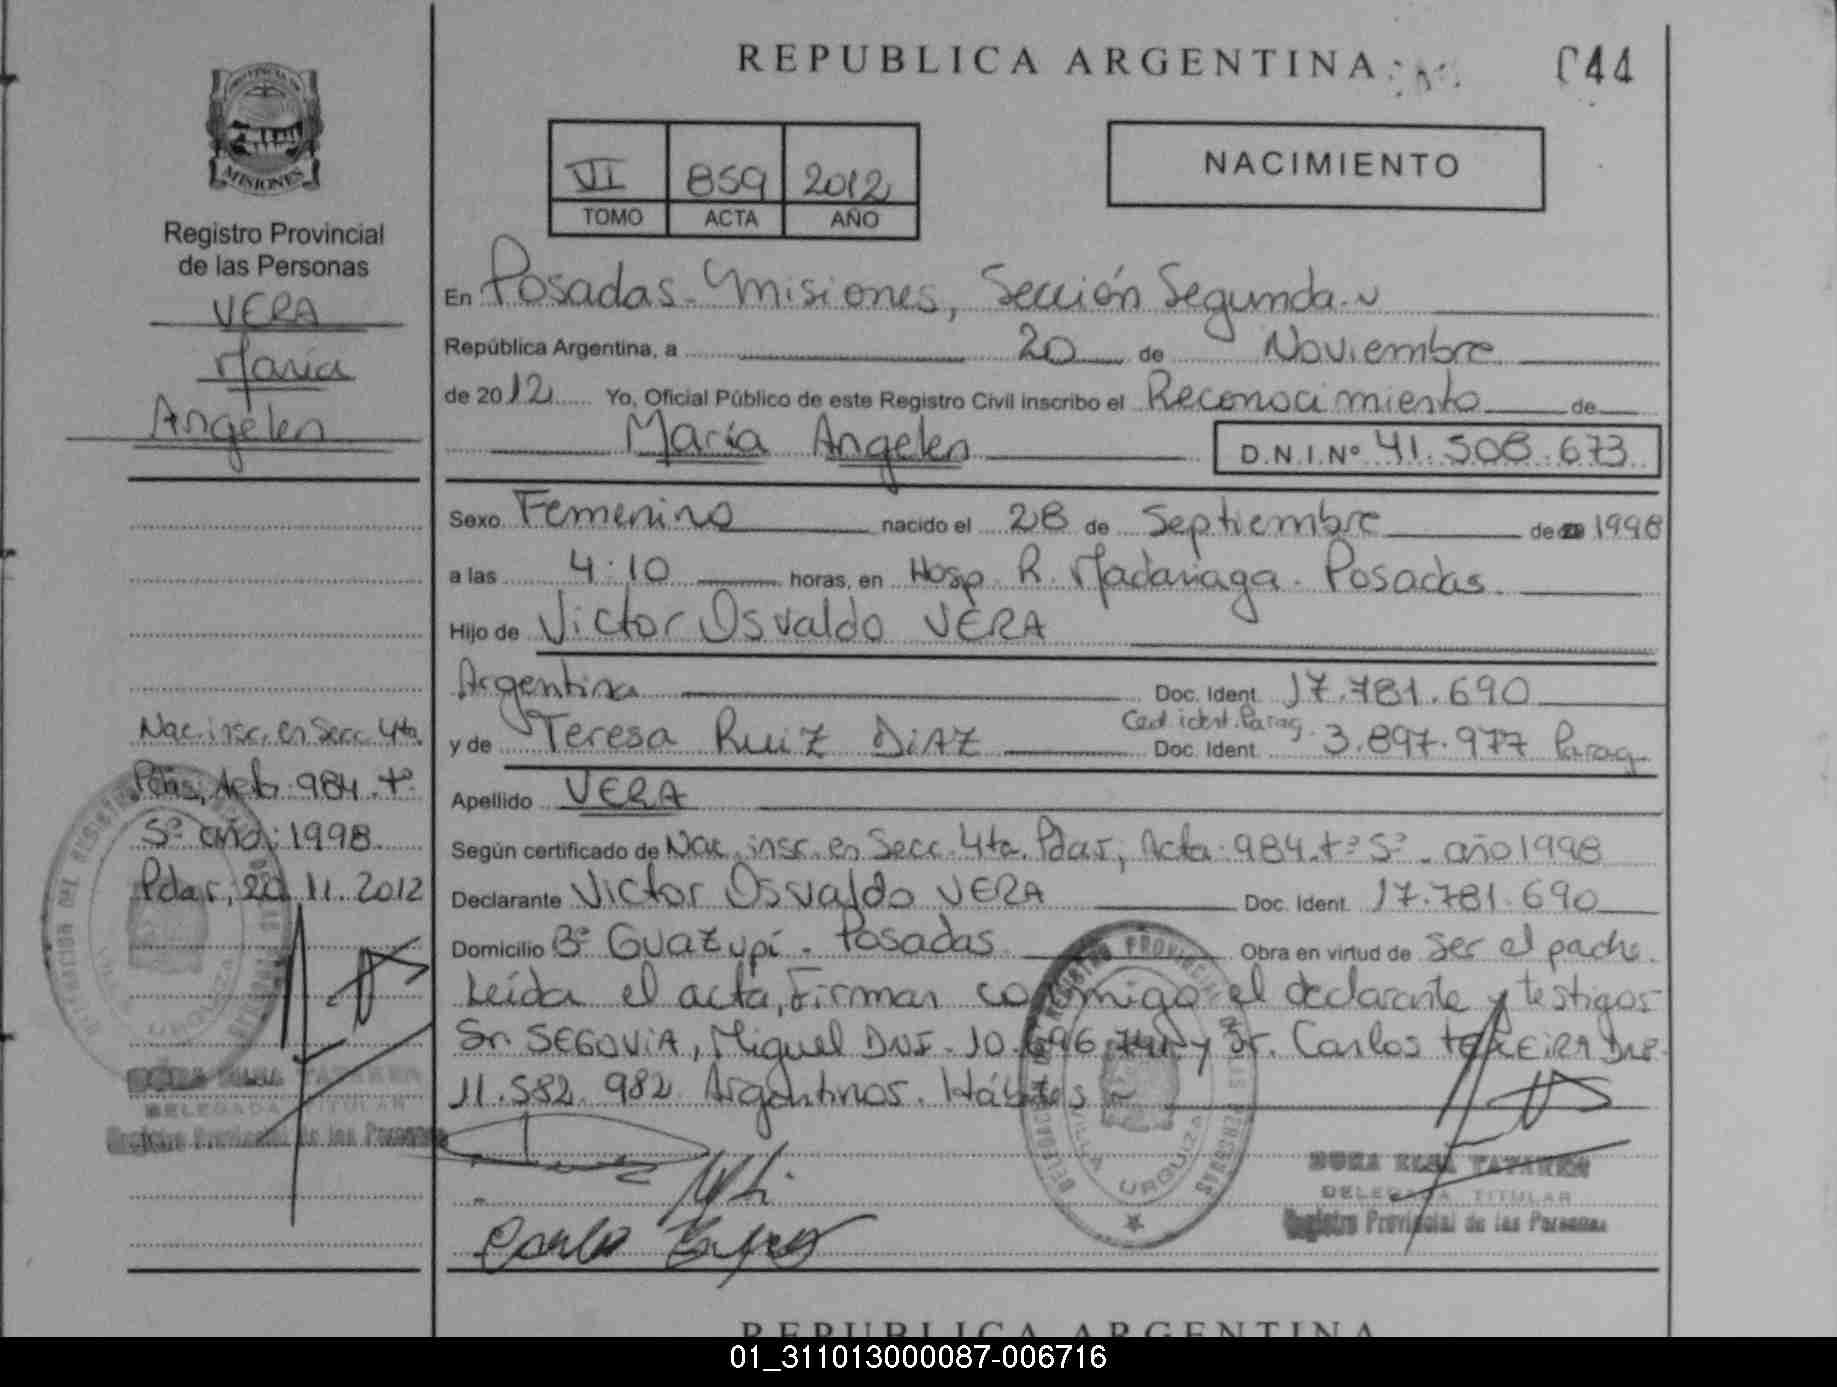 REPUBLICA ARGENTINA
044
MISIONES
Registro Provincial
de las Personas
VERA
María
Angeles
VI 859 2012
TOMO ACTA AÑO
NACIMIENTO
En Posadas - Misiones, Sección Segunda
República Argentina, a 20 de Noviembre
de 2012 Yo, Oficial Público de este Registro Civil inscribo el Reconocimiento de
María Angeles D.N.I.Nº 41.508.673
Sexo Femenino nacido el 28 de Septiembre de 1998
a las 4:10 horas, en Hosp R. Madariaga - Posadas
Hijo de Victor Osvaldo VERA
Argentina Doc. Ident. 17.781.690
Ced. ident. Parag.
y de Teresa Ruiz DiAZ Doc. Ident. 3.897.977 Parag
Apellido VERA
Según certificado de Nac. insc. en Secc. 4ta. Pdas, Acta 984. tº 5º - año 1998
Declarante Victor Osvaldo VERA Doc. Ident. 17.781.690
Domicilio Bº Guazupí - Posadas Obra en virtud de ser el padre.
Leída el acta, Firman conmigo el declarante y testigos
Sr. SEGOVIA, Miguel DNI - 10. y Sr. Carlos TEXEIRA DNI
11.582.982 Argentinos. Hábiles
Nac. insc. en Secc 4ta
Pdas, Acta 984. tº
5º año 1998
Pdas, 20.11.2012
DELEGADA TITULAR
Registro Provincial de las Personas
DELEGACION DEL REGISTRO PROVINCIAL DE LAS PERSONAS
VILLA URQUIZA
DELEGADA TITULAR
Registro Provincial de las Personas
REPUBLICA ARGENTINA
01_311013000087-006716